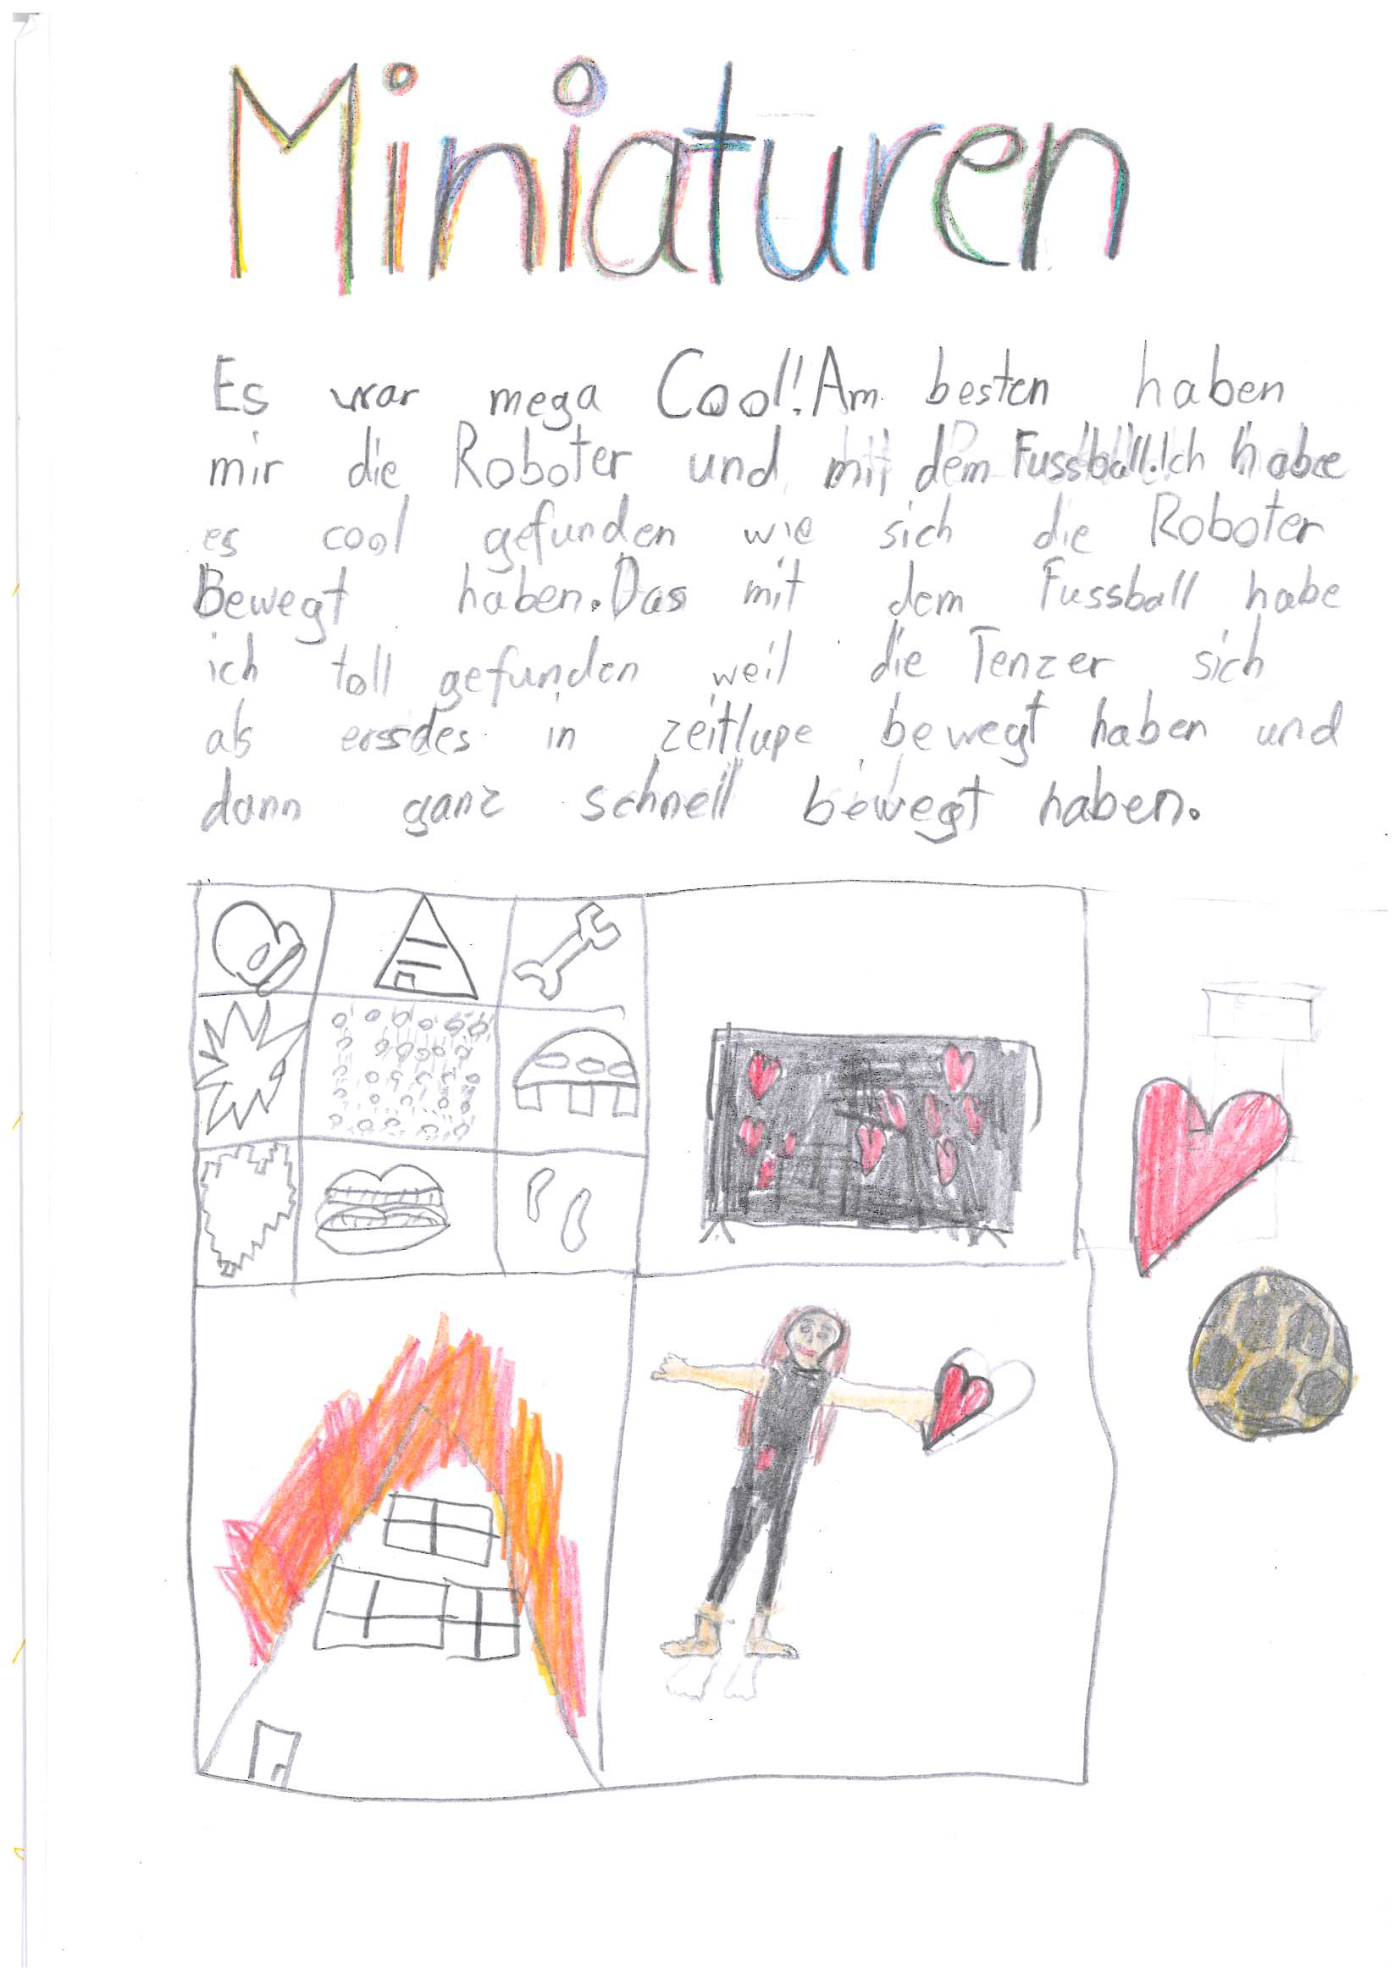 Miniaturen
Es war mega Cool! Am besten haben
mir die Roboter und mit dem Fussball. Ich habe
es cool gefunden wie sich die Roboter
Bewegt haben. Das mit dem Fussball habe
ich toll gefunden weil die Tenzer sich
als erssdes in zeitlupe bewegt haben und
dann ganz schnell bewegt haben.